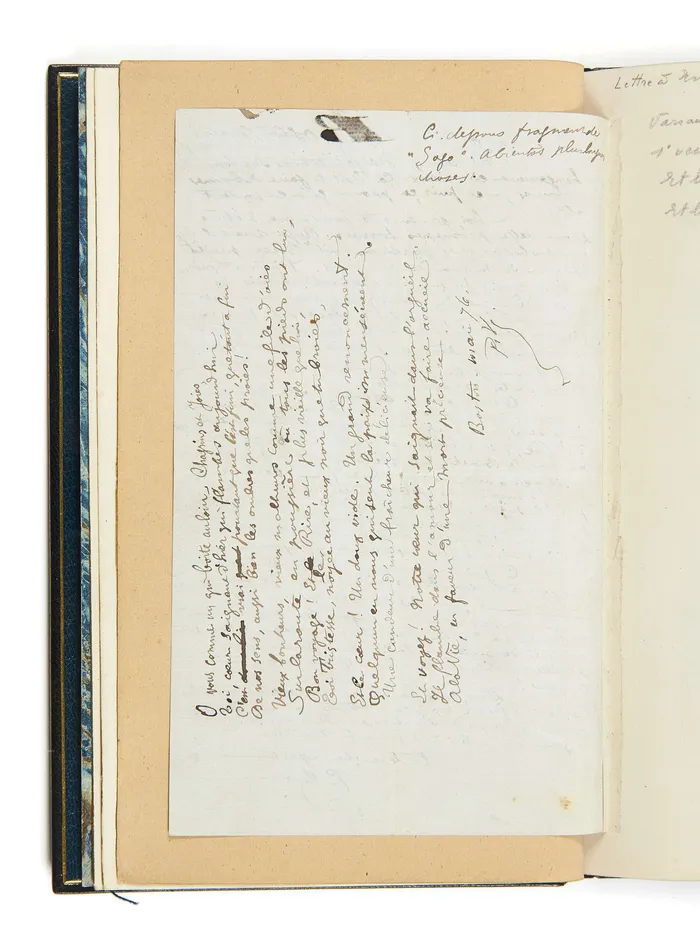 Ci-dessous fragment de
"Sago". A bientôt plus longues
choses.
O vous comme un qui boite au loin, Chagrins et Joies
Toi cœur saignant d'hier qui flambes aujourd'hui
C'est vrai pourtant que c'est fini, que tout a fui
De nos sens, aussi bien les ombres que les proies!
Vieux bonheurs, vieux malheurs comme une file d'oies
Sur la route en poussière où tous les pieds ont lui,
Bon voyage! Et le Rire et plus vieille que lui,
Toi Tristesse, noyée au vieux noir que tu broies,
Et le cœur! Un doux vide. Un grand renoncement.
Quelqu'un en nous qui sent la paix immensément.
Une candeur d'une fraîcheur délicieuse.
Et voyez! Notre cœur qui saignait dans l'orgueil.
Il flambe dans l'amour et s'en va faire accueil
A la Vie, en faveur d'une mort précieuse
Boston - mai 76.
PV.
Lettre à